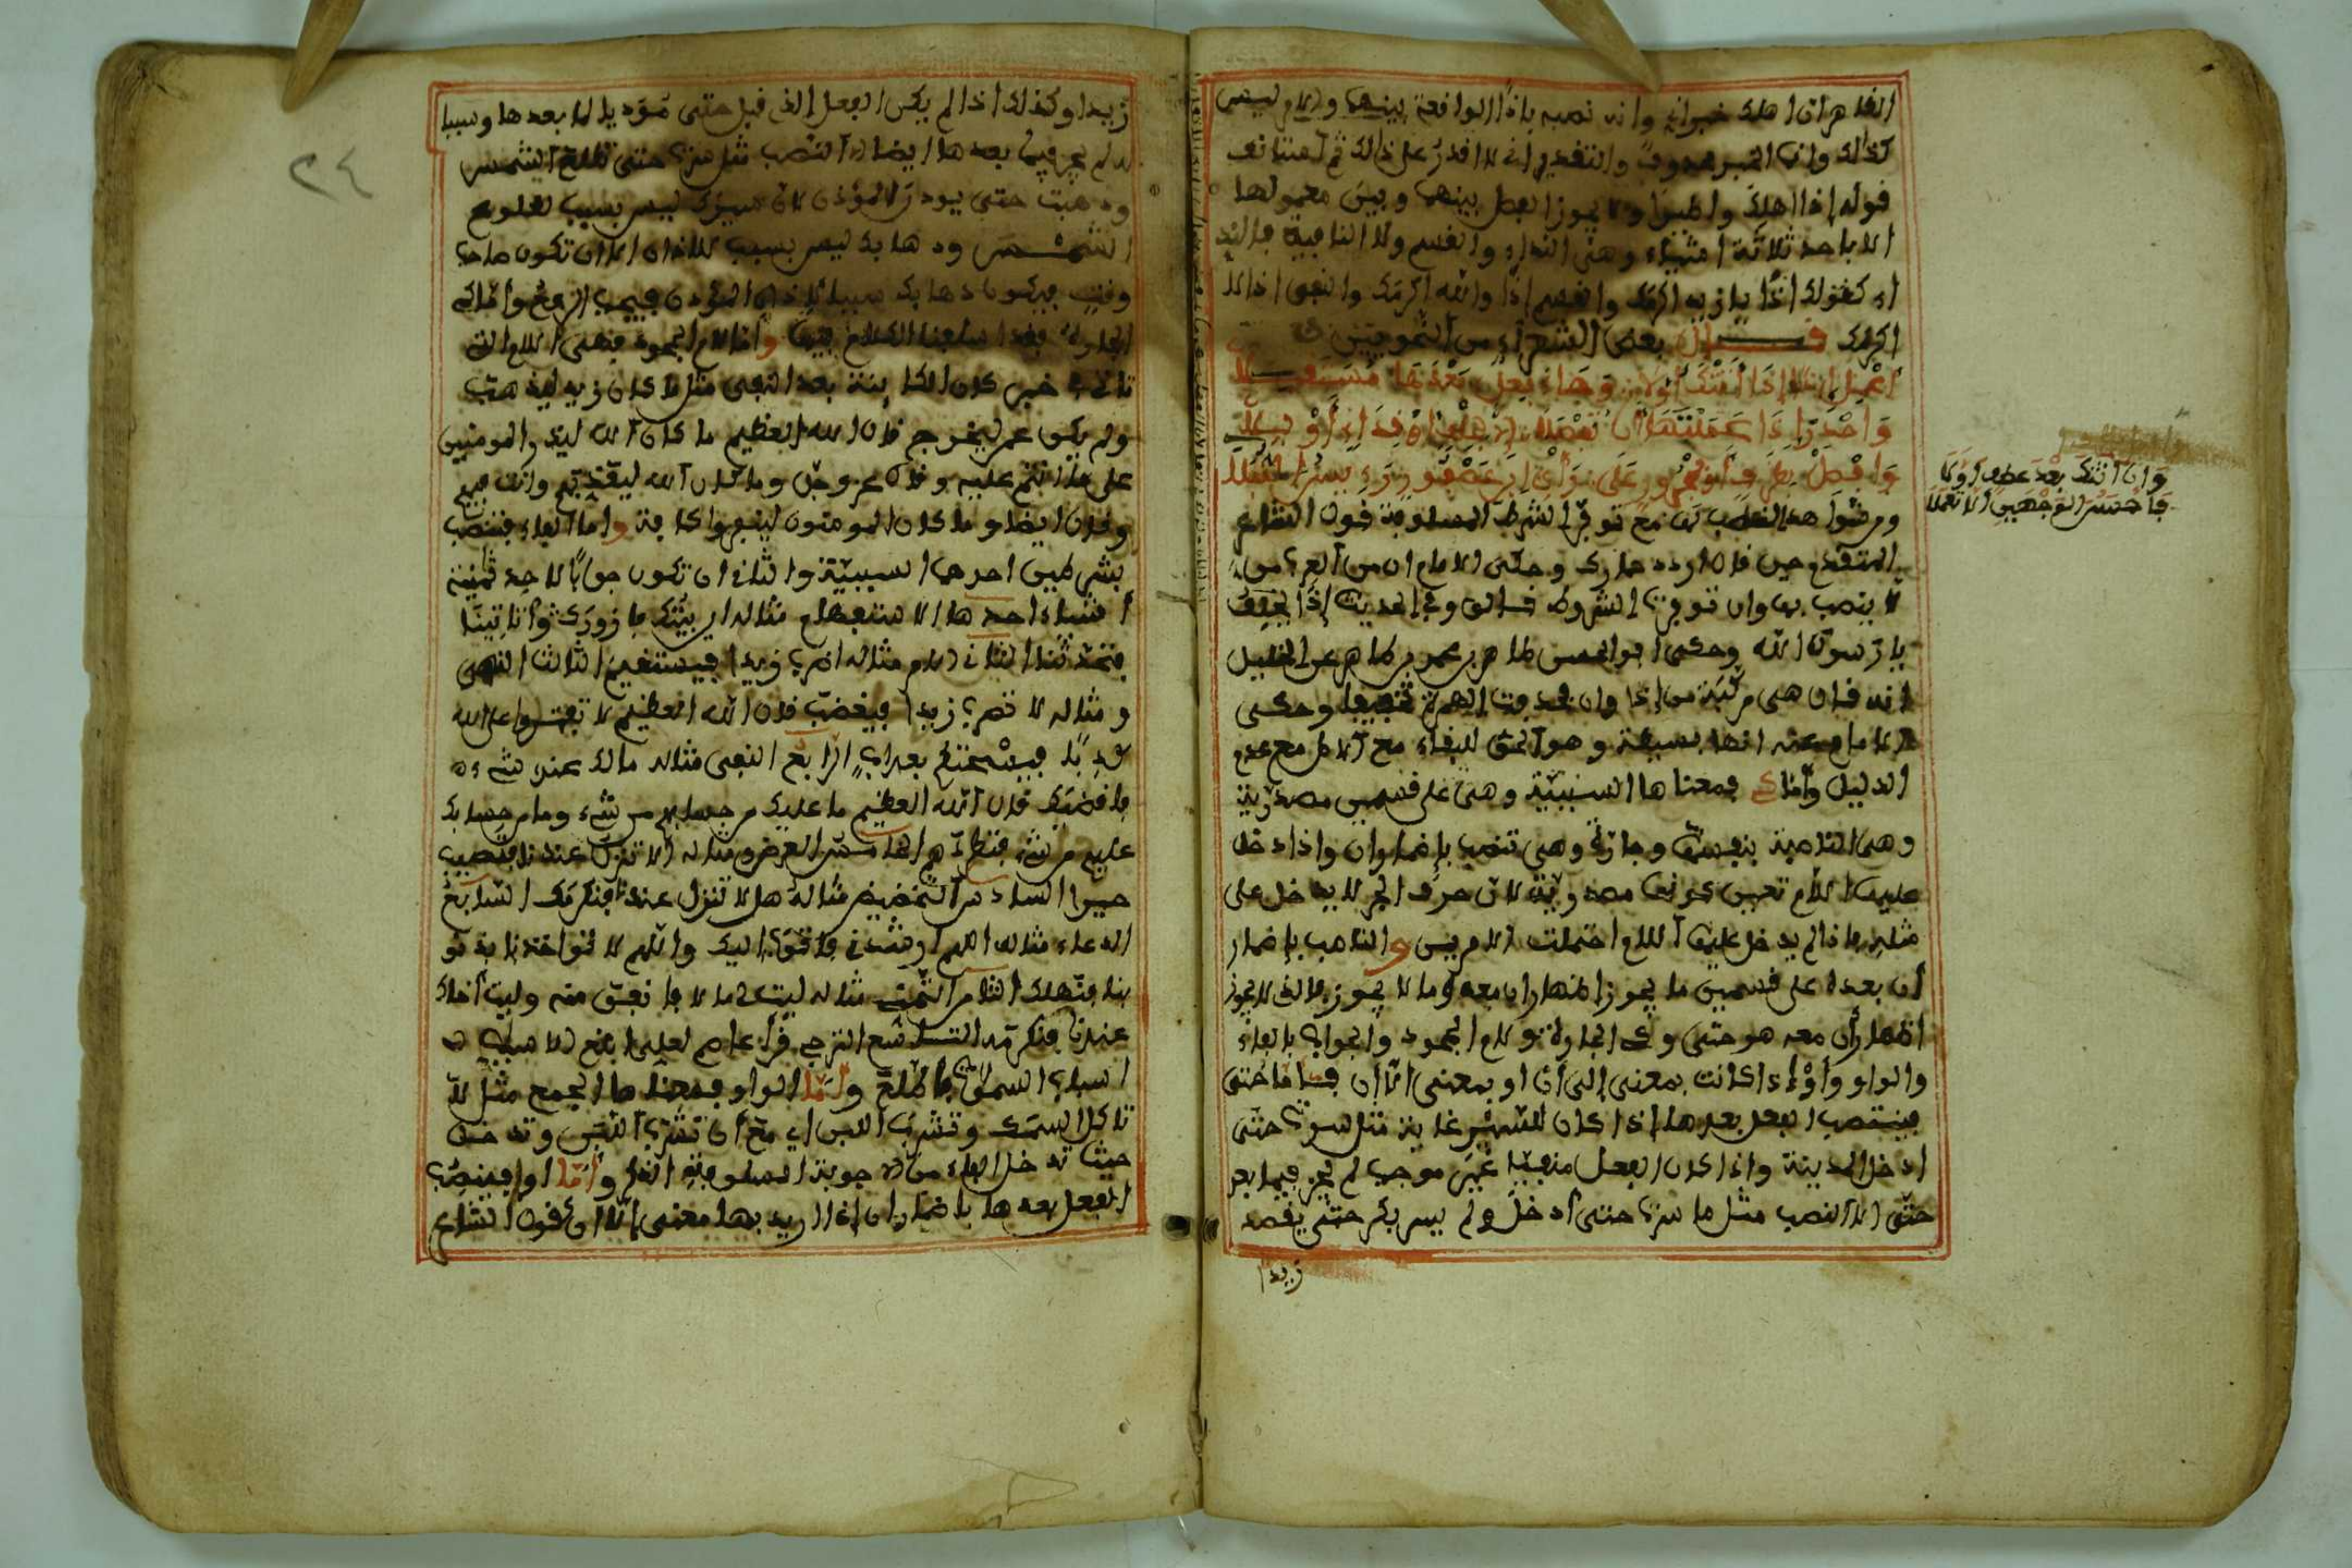 الظاهر ان اهلك خبر ان وانه نصبه باذًا الواقعة بينهما والامر ليس
كذلك وانما الخبر محذوف والتقدير اني لا اقدر على ذلك ثم استانف
قوله إذا اهلك واطيرا ولا يجوز الفصل بينهما وبين معمولها
الا باحد ثلاثة اشياء وهي النداء والقسم ولا النافية فالند
اء كقولك اذًا يا زيد اكرمك والقسم إذًا والله اكرمك والنفي اذا لا
اكرمك قال بعض الشعراء من النحويين
أعمل إذًا إذا أتتك أولا وجاء فعل بعدها مستقبلا
واحذر إذا عملتها أن تفصلا الا بحلف أو نداء أو بلا
وافصل بظرف أو بمجرور على رأي ابن عصفور رءيس النبلا
وان اتتك بعد عطف اولا
فاحسن الوجهين الا تعملا
ومن شواهد النصب بها مع توفر الشرط المسلوفة قول الشاعر
المتقدم حين قال اردد حمارك وحكى الامام ان من العرب من
لا ينصب بها وان توفرت الشروط قال وفي الحديث إذًا يحلف
يا رسول الله وحكى ابو الحسن طاهر بن عمر بن طاهر عن الخليل
انه قال هي مركبة من إذا وان فحذفت الهمزة تخفيفا وحكى
الامام عنه انها بسيطة وهو الحق للبقاء مع الاصل مع عدم
الدليل وأما كي فمعناها السببية وهي على قسمين مصدرية
وهي الناصبة بنفسها وجارة وهي تنصب بإضمار ان واذا دخل
عليها اللام تعين كونها مصدرية لان حرف الجر لا يدخل على
مثله فاذا لم يدخل عليها اللام احتملت الامرين والناصب بإضمار
أن بعده على قسمين ما يجوز اظهار ان معه وما لا يجوز فالذي لا يجوز
اظهار أن معه هو حتى وكي الجارة ولام الجحود والجواب بالفاء
والواو وأو اذا كانت بمعنى إلى أن او بمعنى الا أن فاما حتى
فينتصب الفعل بعدها إذا كان للسير غاية مثل سرت حتى
ادخل المدينة واذا كان الفعل منفيا غير موجب لم يجز فيما بعد
حتى الا النصب مثل ما سرت حتى أدخل ولم يسر بكر حتى يقصد
زيدا
زيدا وكذلك اذا لم يكن الفعل الذي قبل حتى مؤديا لما بعدها وسببا
له لم يجز فيما بعدها ايضا الا النصب مثل سرت حتى تطلع الشمس
وذهبت حتى يوذن المؤذن لان سيرك ليس بسبب لطلوع
الشمس وذهابك ليس بسبب للاذان الا ان تكون صاحب
وقت فيكون ذهابك سببا لاذان المؤذن فيجب الرفع وأما كي
الجارة فقد اسلفنا الكلام فيها وأما لام الجحود فهي اللام التي
تاتي في خبر كان الكاينة بعد النفي مثل ما كان زيد ليذهب
ولم يكن عمر ليخرج قال الله العظيم ما كان الله ليذر المومنين
على ما انتم عليه وقال عز وجل وما كان الله ليعذبهم وانت فيهم
وقال ايضا وما كان المومنون لينفروا كافة واما الفاء فتنصب
بشرطين احدهما السببية والثاني ان تكون جوابًا لاحد ثمنية
أشياء احدها الاستفهام مثاله اين بيتك فازورك أتاتينا
فتحدثنا الثاني الامر مثاله اضرب زيدا فيستقيم الثالث النهي
ومثاله لا تضرب زيدا فيغضب قال الله العظيم لا تفتروا على الله
كذبا فيسحتكم بعذاب الرابع النفي مثاله مالك عندي شيء
فاقضيك قال الله العظيم ما عليك من حسابهم من شيء وما من حسابك
عليهم من شيء فتطردهم الخامس العرض مثاله ألا تنزل عندنا فتصيب
خيرا السادس التحضيض مثاله هلا تنزل عندنا فنكرمك السابع
الدعاء مثاله اللهم ارشدني فاتقرب اليك واللهم لا تواخذنا بذنو
بنا فنهلك الثامن التمني مثاله ليت لي مالا فانفق منه وليت أخاك
عندنا فنكرمه التاسع الترجي قرأ عاصم لعلي ابلغ الاسباب
اسباب السموات فاطلع وأما الواو فمعناها الجمع مثل لا
تاكل السمك وتشرب اللبن اي مع أن تشرب اللبن وتدخل
حيث تدخل الفاء من الاجوبة المسلوفة الذكر وأما او فينصب
الفعل بعدها باضمار ان إذا اريد بها معنى إلا ان كقول الشاعر
٢٤